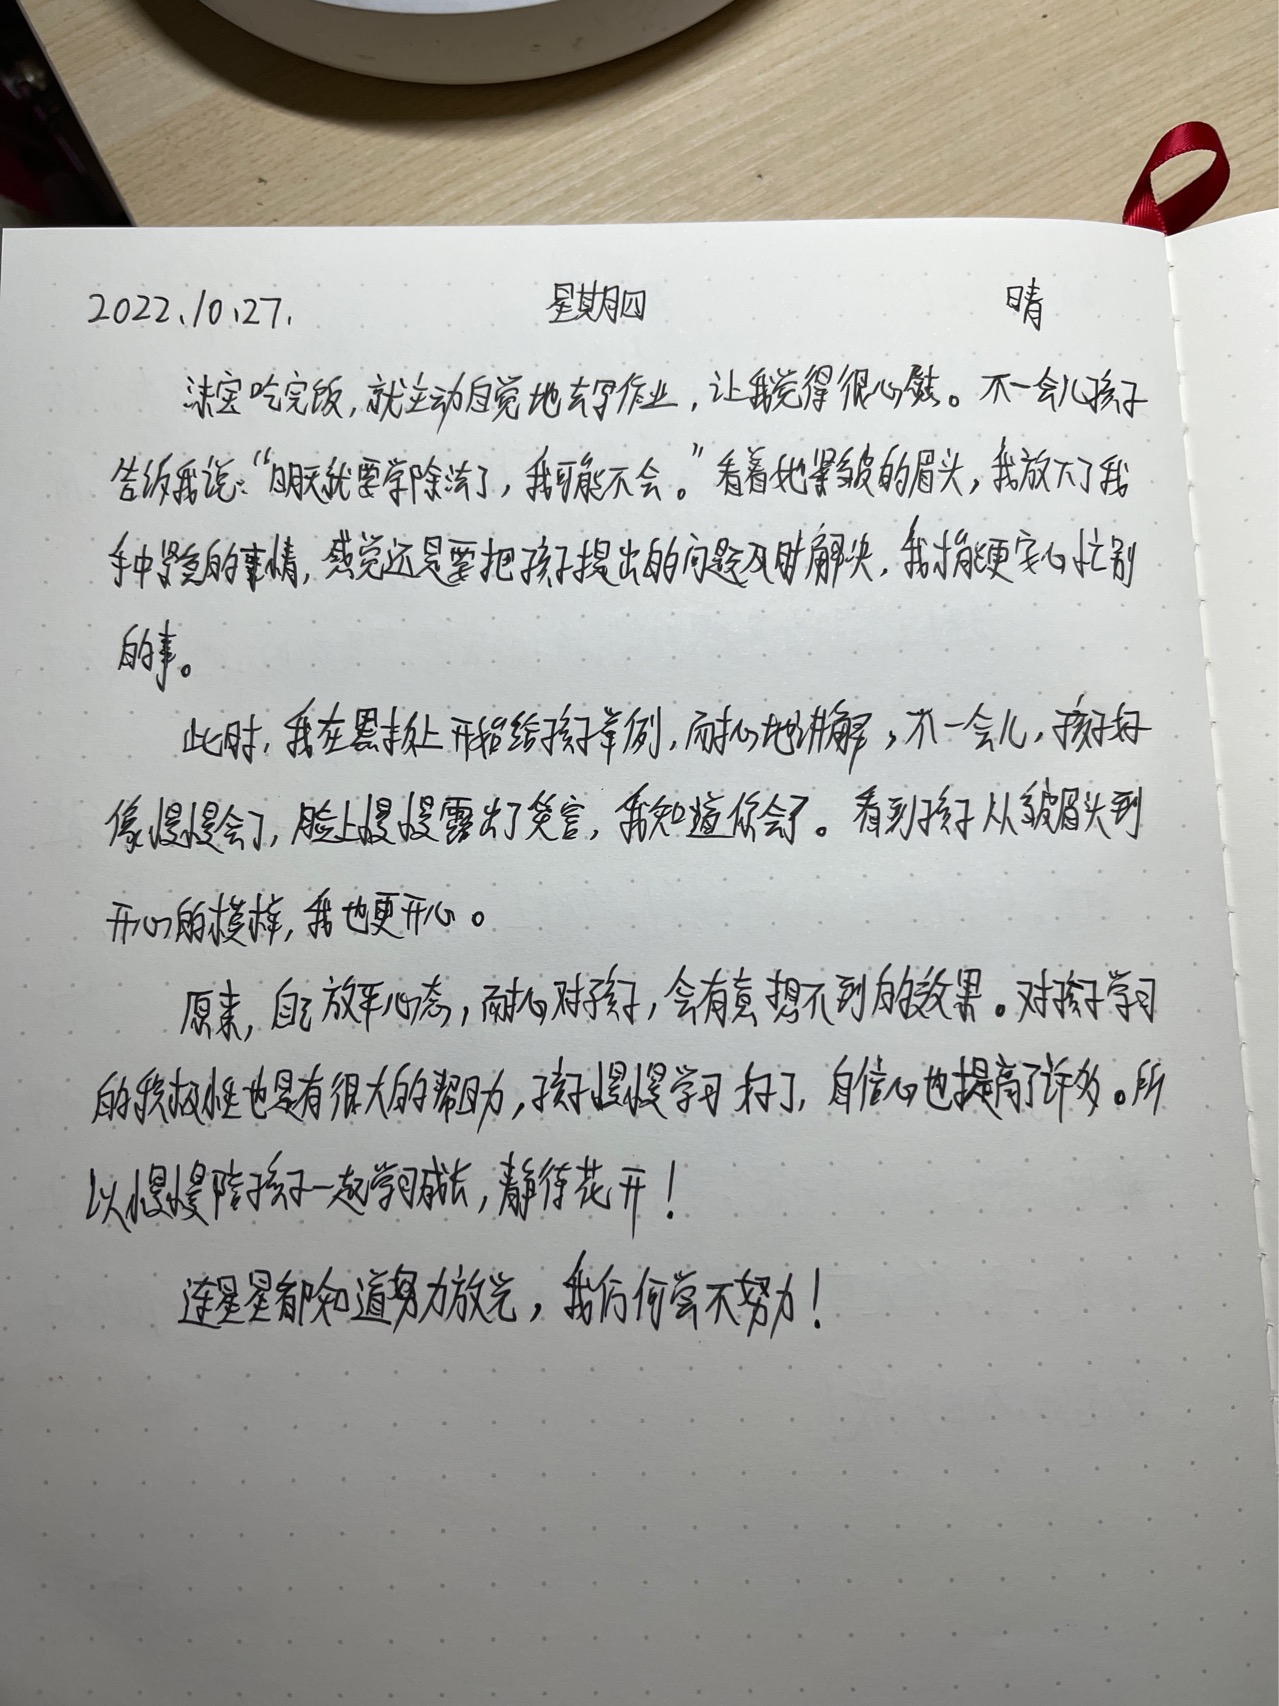 2022.10.27. 星期四 晴
宝吃完饭，就主动自觉地去写作业，让我觉得很心慰。不一会儿孩子
告诉我说：“明天就要学除法了，我可能不会。”看着她紧皱的眉头，我放下了我
手中紧急的事情，感觉还是要把孩子提出的问题及时解决，我才能更安心忙别
的事。
此时，我在黑板上开始给孩子举例，耐心地讲解，不一会儿，孩子好
像慢慢会了，脸上慢慢露出了笑容，我知道你会了。看到孩子从皱眉头到
开心的模样，我也更开心。
原来，自己放平心态，耐心对孩子，会有意想不到的效果。对孩子学习
的积极性也是有很大的帮助，孩子慢慢学习好了，自信心也提高了许多。所
以慢慢陪孩子一起学习成长，静待花开！
连星星都知道努力放光，我们何尝不努力！